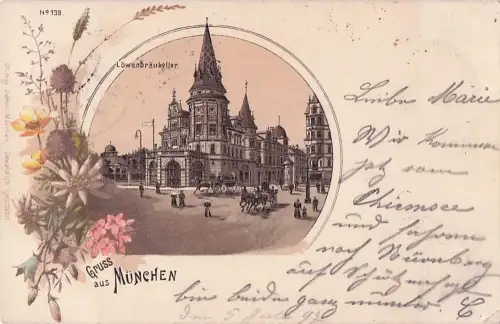 No 139.
Löwenbräukeller.
Gruss
aus München
Liebe Marie
Wir kommen
jetzt vom
Chiemsee
und fahren
nach Nürnberg
auf
bin beide ganz munter. C
den 5 Juli 97